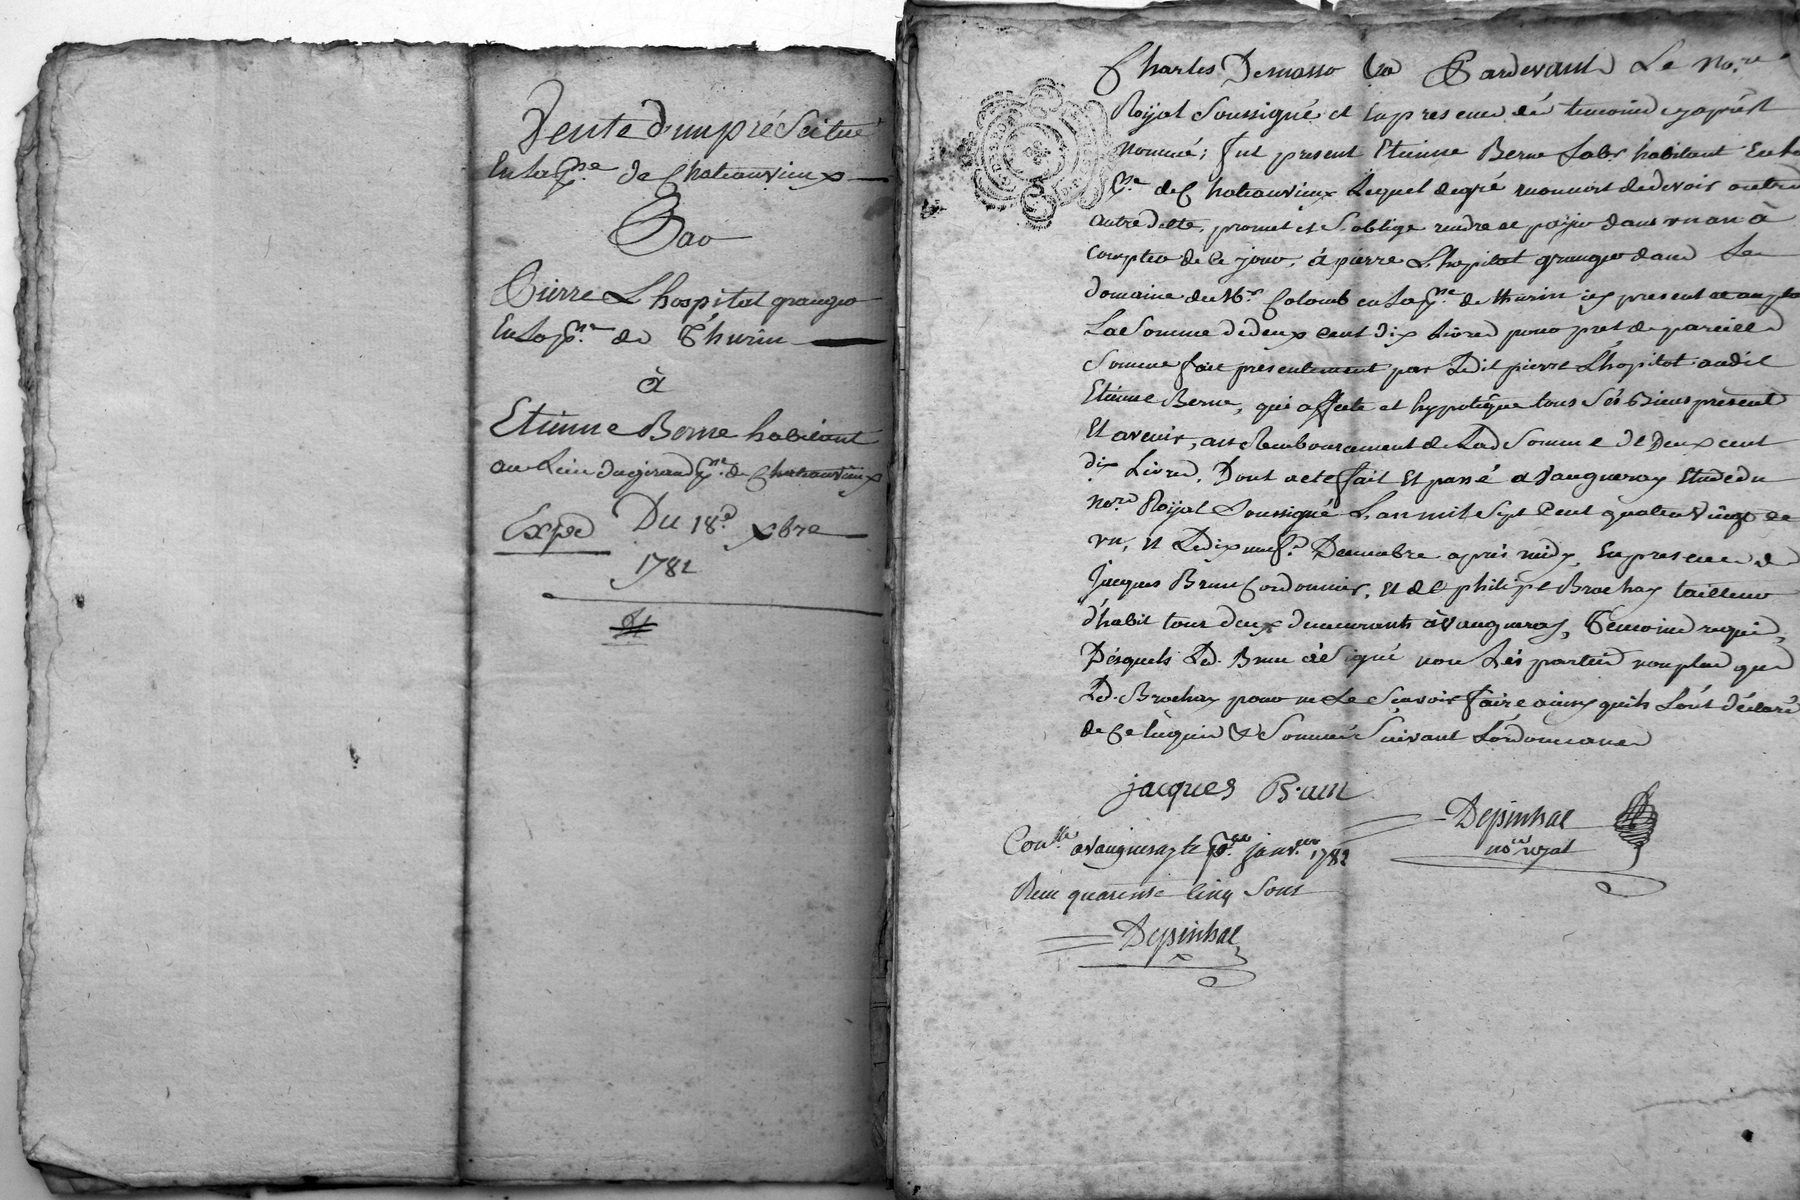 Vente d'un pré Scitué
En la Psse de Chateauvieux
Par
Pierre L'hospital granger
En la Psse de Thurin
à
Etienne Berne habitant
au Lieu du girand Psse de Chateauvieux
Exped Du 18e xbre
1781
Charles Par devant Le nore
Royal Soussigné et En presence dés temoins cy aprést
nommé; fut present Etienne Berne habitant En la
Psse de Chateauvieux Lequel de gré reconnoit de devoir outre
autre dette, promet et S'oblige rendre et payer dans vn an à
compter de Ce jour, à pierre L'hopital granger dans Le
domaine du Sr Colomb en la Psse de thurin icy present et
La Somme de deux cent dix Livres pour pret de pareille
Somme fait présentement par Ledit pierre L'hopital audit
Etienne Berne, qui affecte et hypotéque tous Sés Biens présent
Et avenir, au Remboursement de Lad Somme de Deux cent
dix Livres, Dont acte fait Et passé a Vaugneray Etude du
nore Royal Soussigné L'an mil Sept Cent quatre Vingt
vn, et Le dix neuf Decembre aprés midy, En presence de
Jacques Brun Cordonnier, et de philipe Brochay tailleur
d'habit tous deux demeurants à Vaugneray, Temoins requis,
Désquels Led. Brun à Signé non Lés parties non plus que
Led. Brochay pour ne Le Sçavoir faire ainsy quils L'ont déclaré
de Ce enquis & Sommés Suivant L'ordonnance
jacques Brun
Depinhac
nore royal
Conlle a Vaugneray le pr janvier 1782
Reçu quarente Cinq Sous
Depinhac